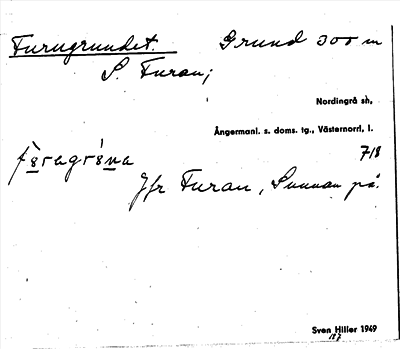 Furugrundet. Grund 300 m
S. Furan;
Nordingrå sh,
Ångermanl. s. doms. tg., Västernorrl, l.
718
Jfr Furan, Sunnan på.
Sven Hiller 1949
187